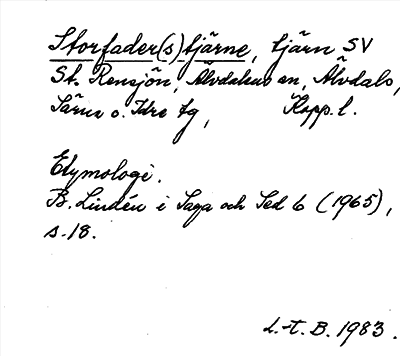 Storfader(s)tjärne, tjärn SV
St. Rensjön, Älvdalens sn, Älvdals,
Särna o. Idre tg, Kopp. l.
Etymologi.
B. Lindén i Saga och Sed 6 (1965),
s. 18.
L.-t. B. 1983.